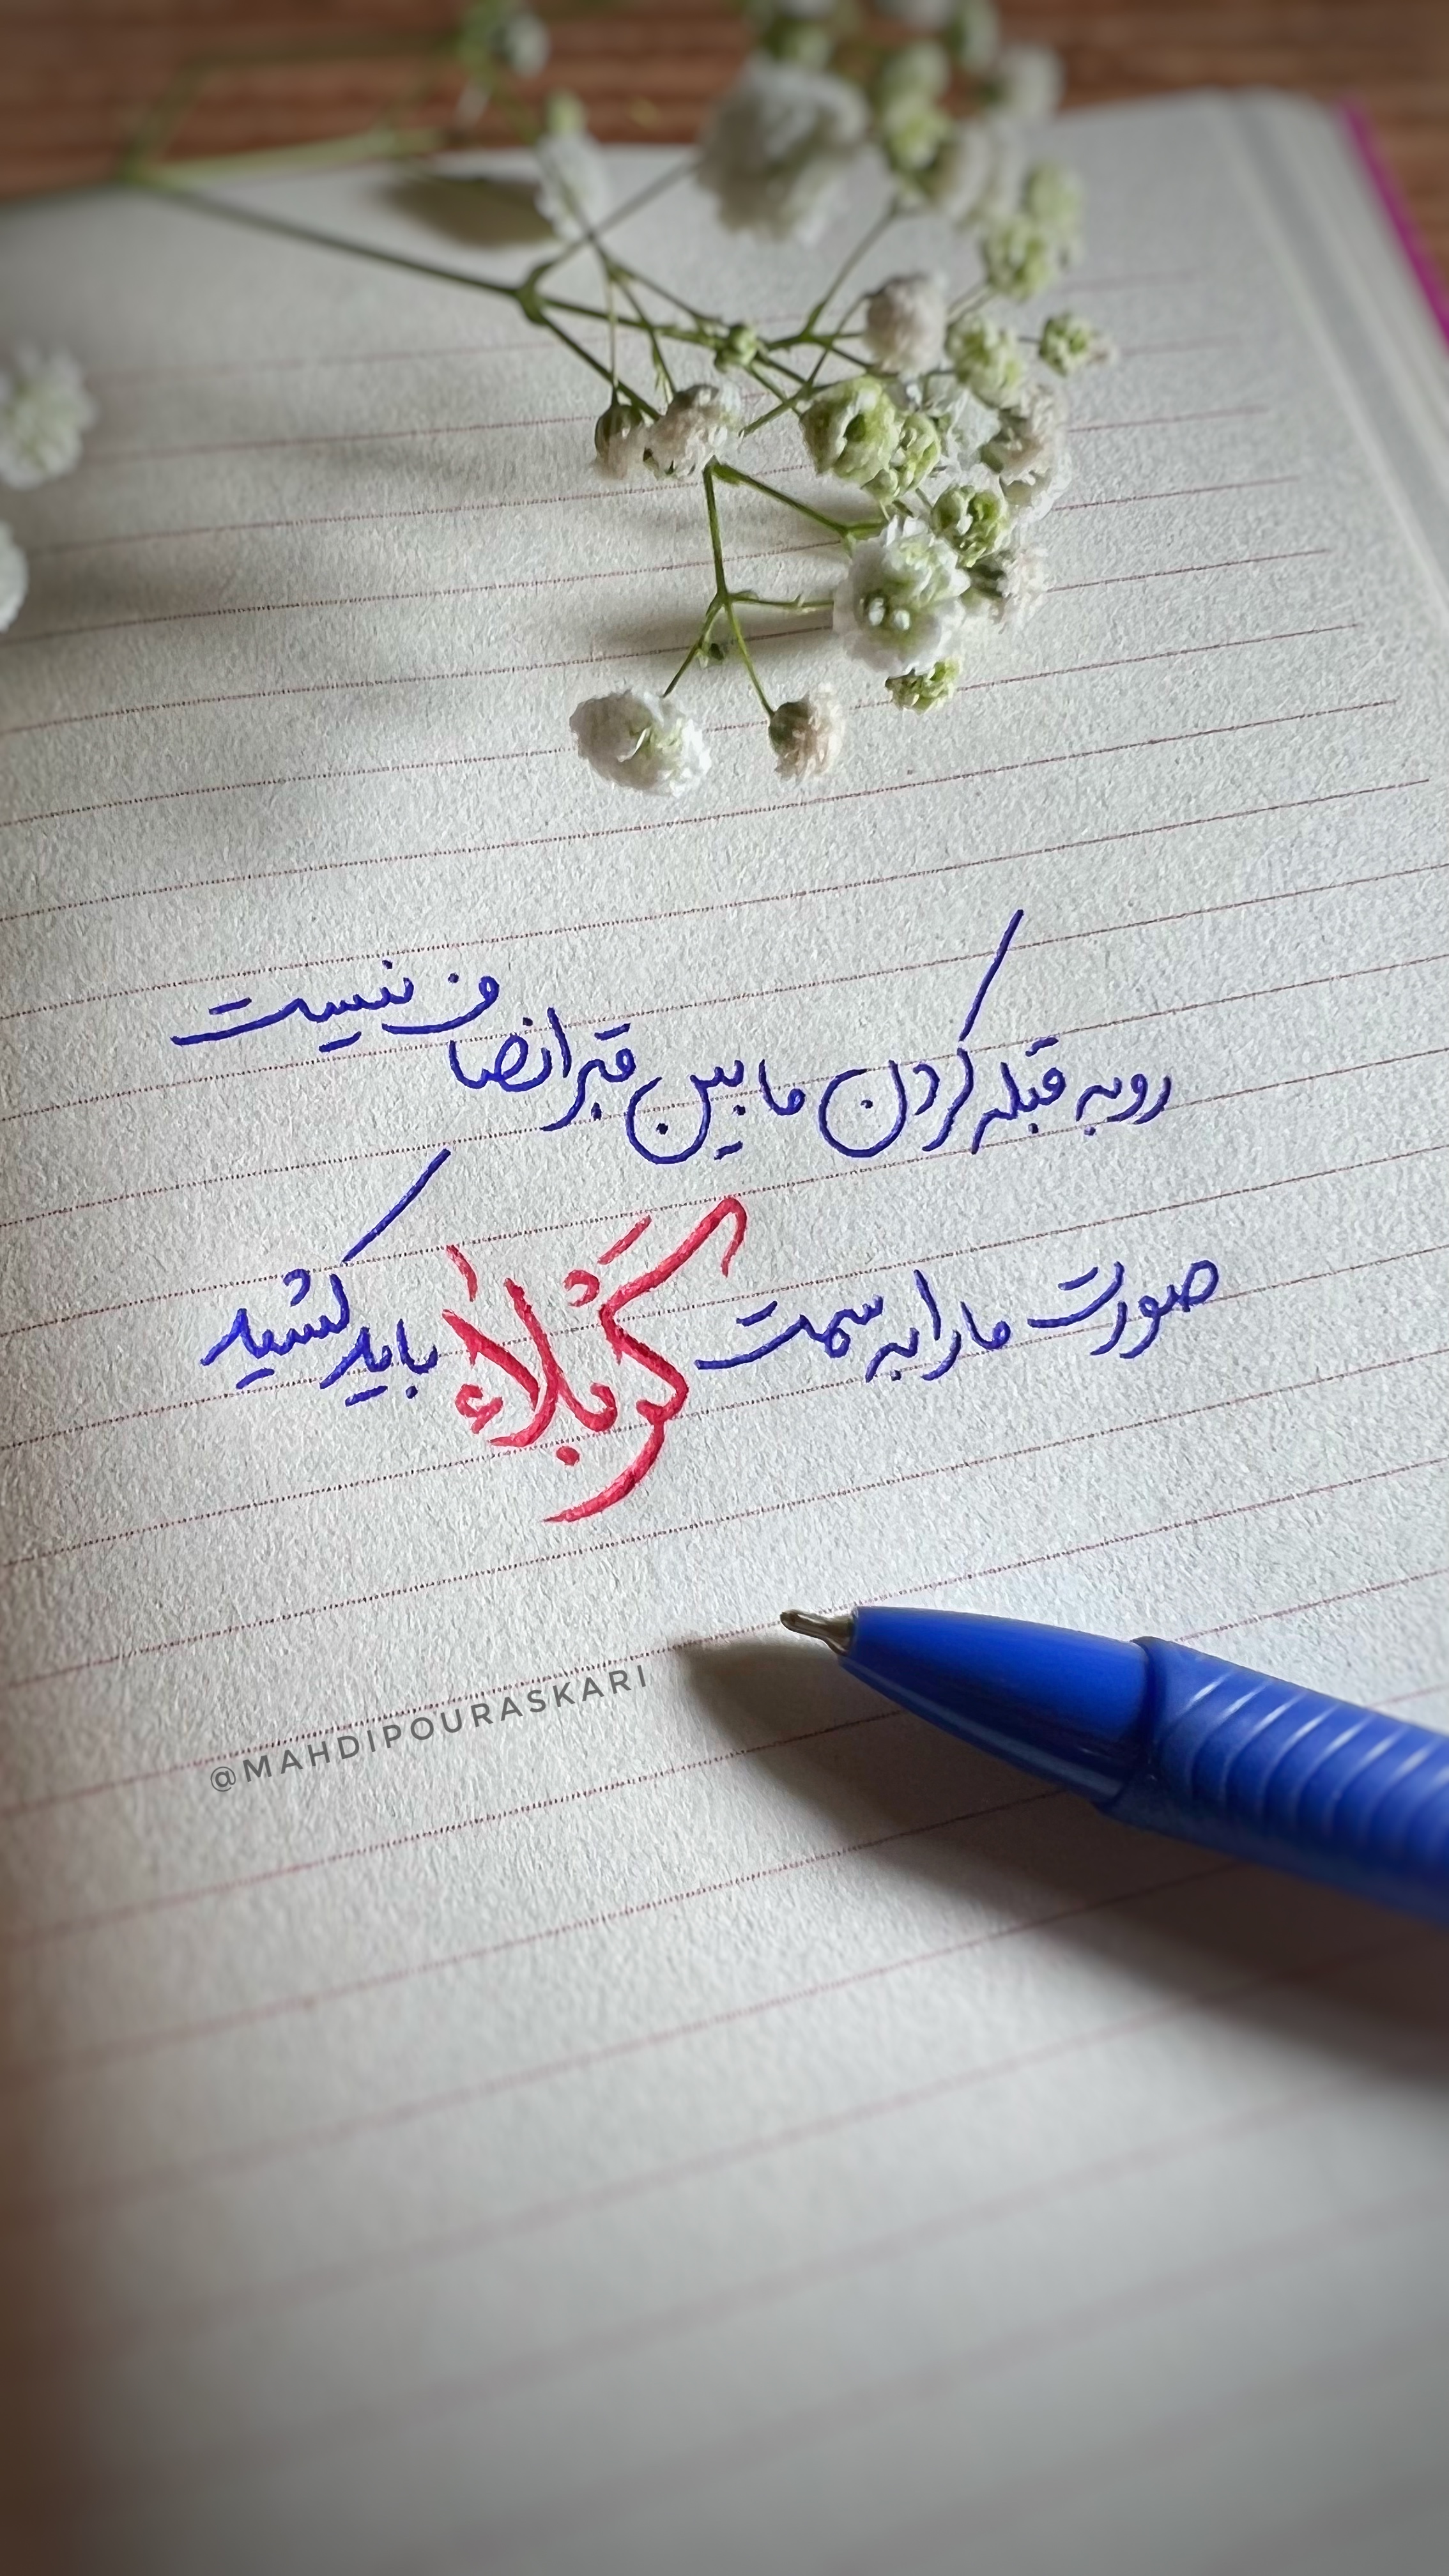 رو به قبله کردن ما بین قبر انصاف نیست
صورت ما را به سمت کَرْبَلاٰء باید کشید
@MAHDIPOURASKARI